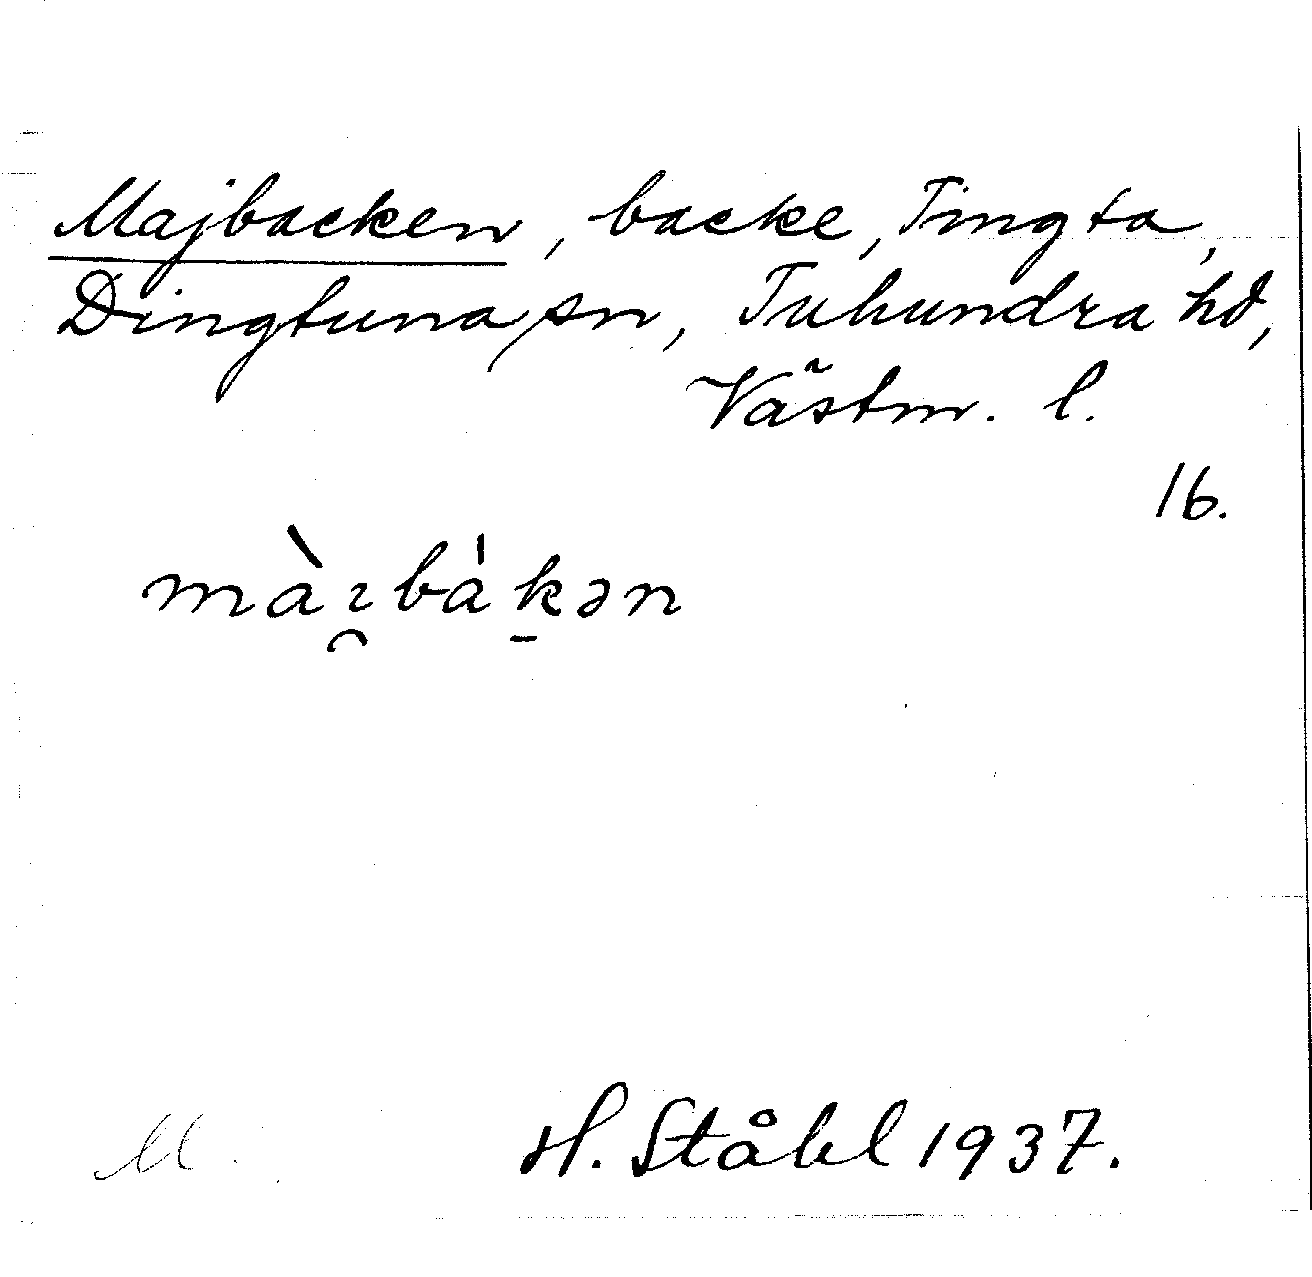 Majbacken, backe, Tingta,
Dingtuna sn, Tuhundra hd,
Västm. l.
16.
màı̯bákən
M.
H. Ståhl 1937.